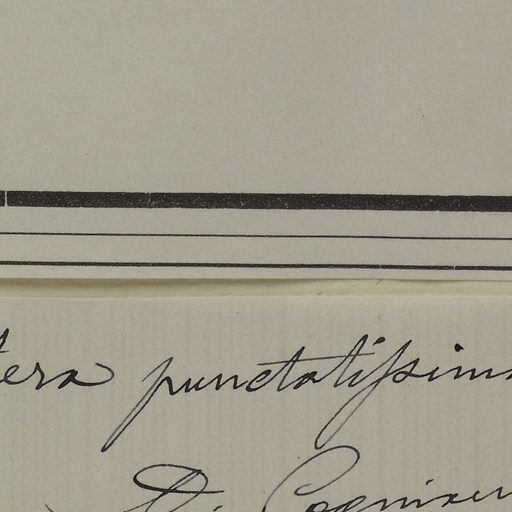 tera punctatissima
D. Cogniaux